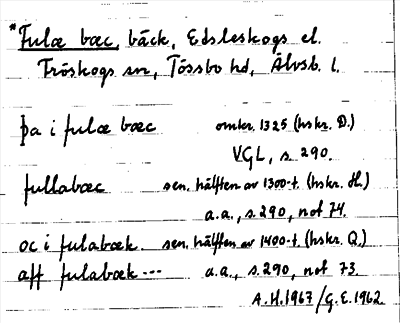 *Fulæ bæc, bäck, Edsleskogs el.
Fröskogs sn, Tössbo hd, Älvsb. l.
þa i fulæ bæc omkr. 1325 (hskr. D.)
VGL, s. 290.
fullabæc sen. hälften av 1300-t. (hskr. H.)
a.a., s. 290, not 74.
oc i fulabæk. sen. hälften av 1400-t. (hskr. Q.)
aff fulabæk --- a.a., s. 290, not 73.
A.H. 1967/G.E. 1962